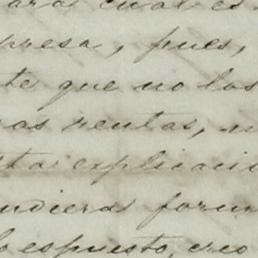 ara cual es
presa, pues,
te que no los
as rentas,
sta explicacio
udieras forn
lo espuesto, creo